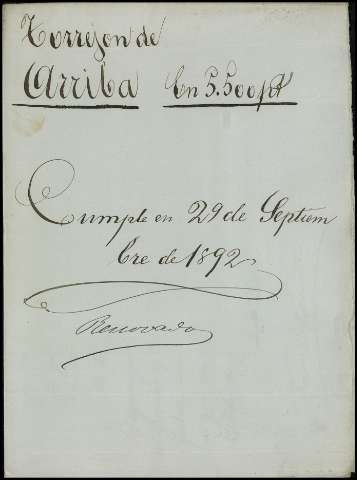 Torrejon de
Arriba En 5.500 pts
Cumple en 29 de Septiem
bre de 1892
Renovado